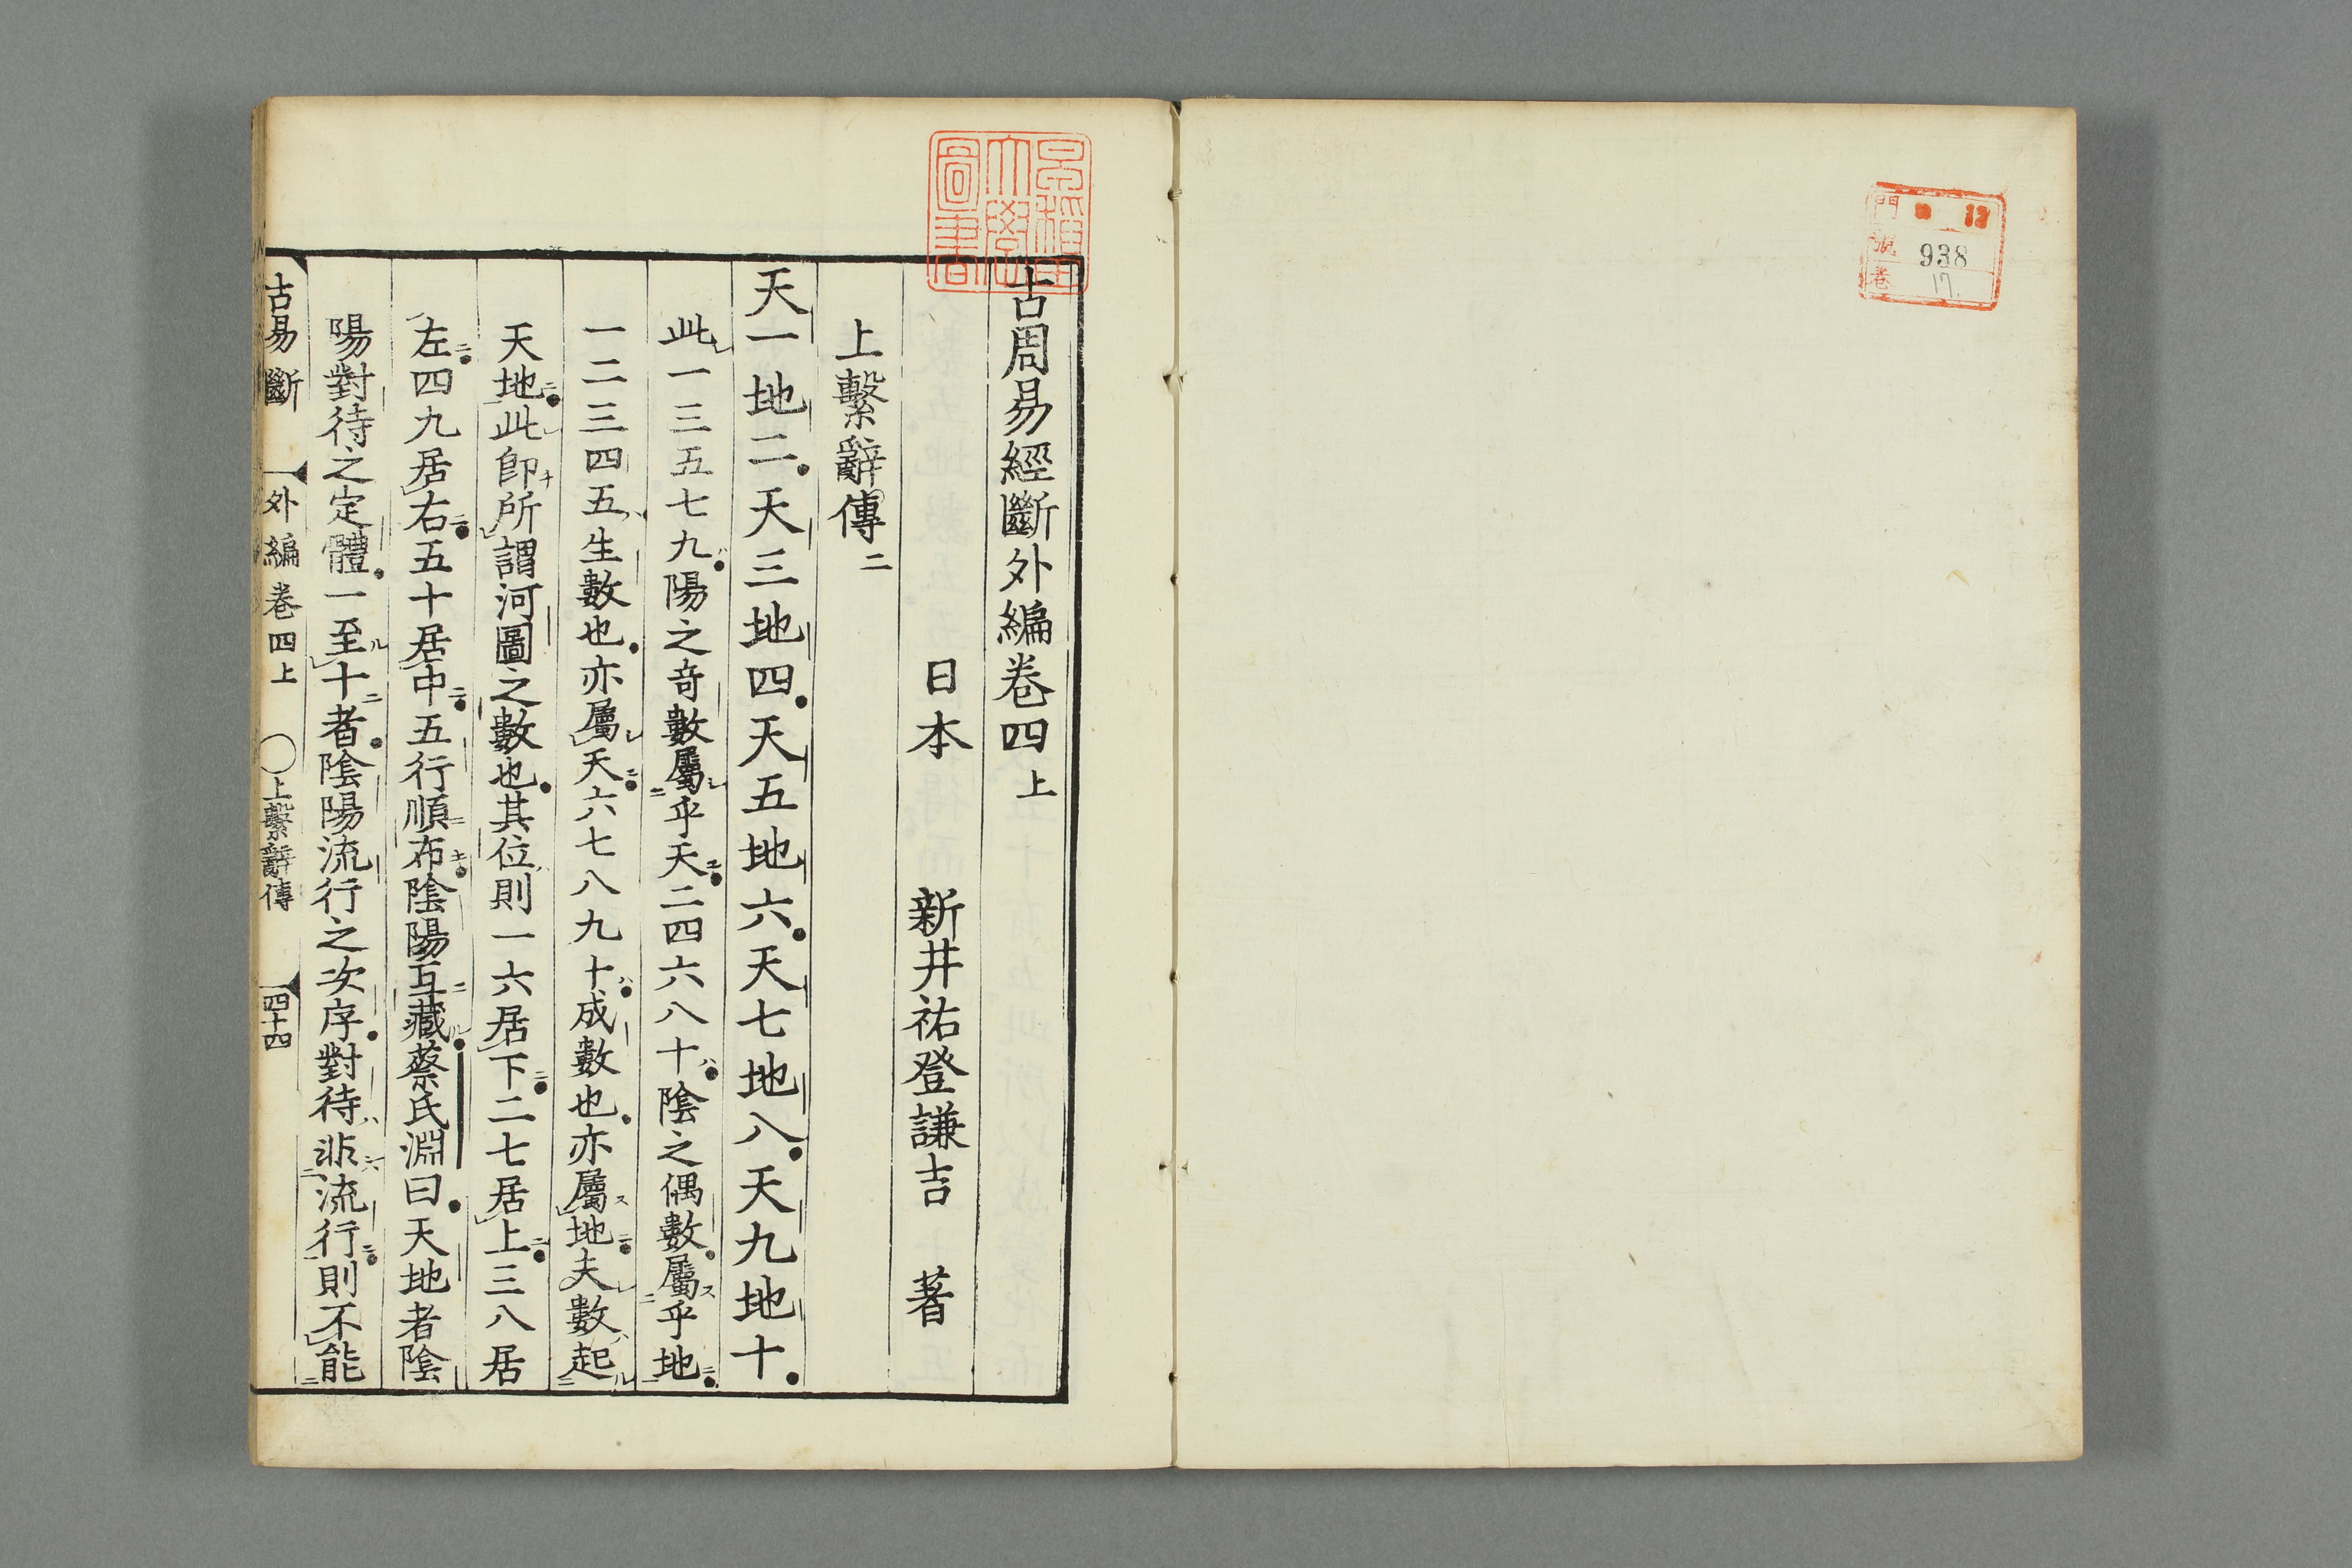 門 13
號 938
卷 17.
早稲田
大學
圖書
古周易經斷外編卷四上
日本 新井祐登謙吉 著
上繫辭傳二
天一地二天三地四天五地六天七地八天九地十
此一三五七九陽之奇數屬乎天二四六八十陰之偶數屬乎地
一二三四五生數也亦屬天六七八九十成數也亦屬地夫數起
天地此卽所謂河圖之數也其位則一六居下二七居上三八居
左四九居右五十居中五行順布陰陽互藏蔡氏淵曰天地者陰
陽對待之定體一至十者陰陽流行之次序對待非流行則不能
古易斷 外編卷四上 〇上繫辭傳 四十四